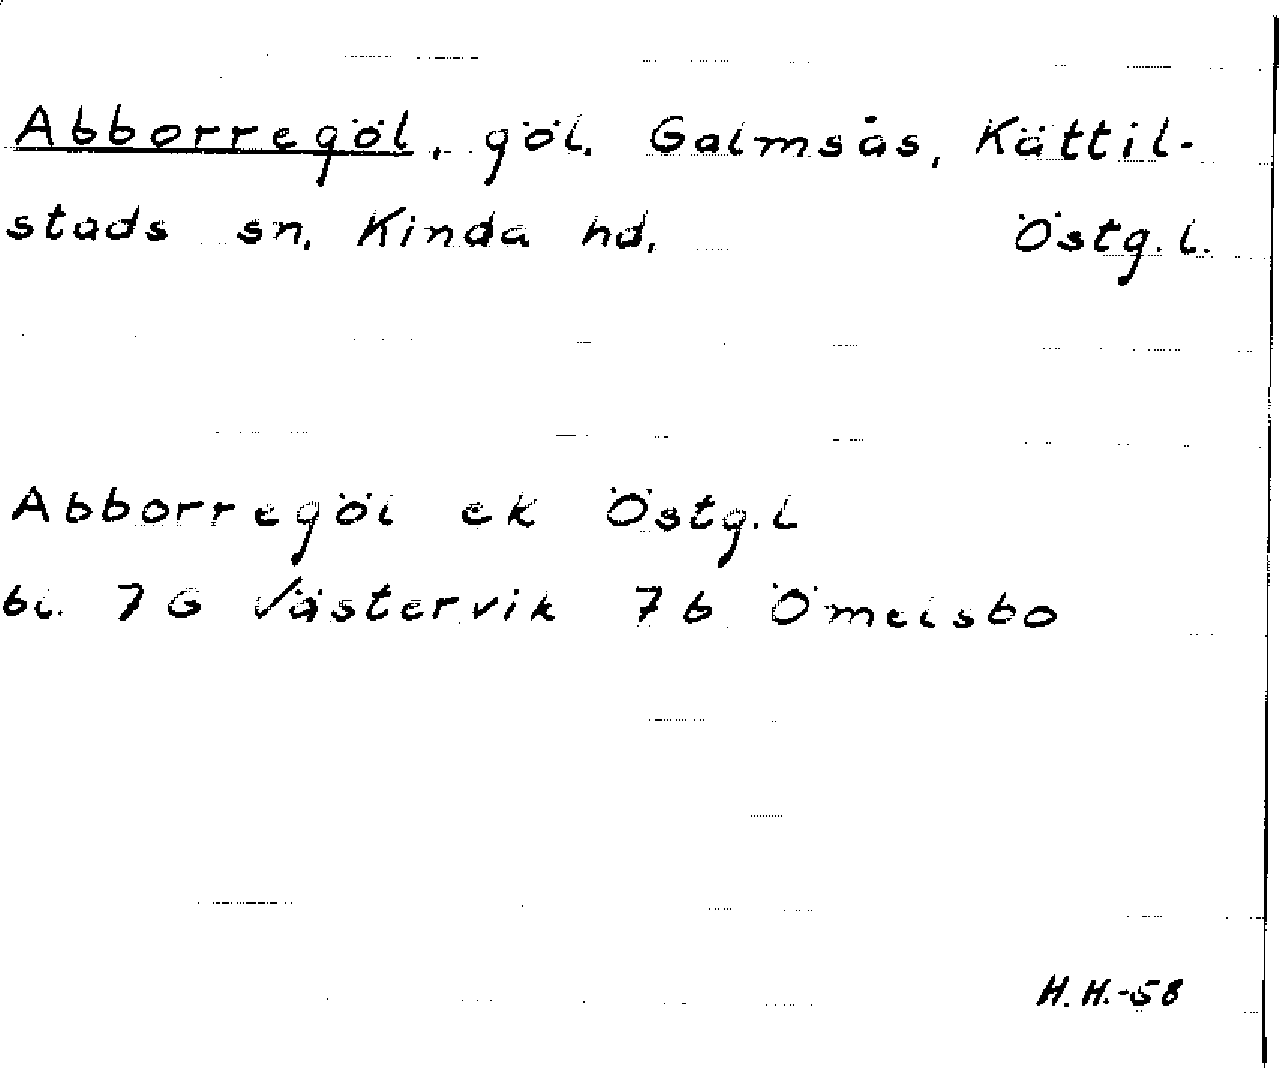 Abborregöl, göl. Galmsås, Kättil-
stads sn, Kinda hd, Östg. l.
Abborregöl ek Östg. l
bl. 7 G Västervik 7 b Ömelsbo
H.H.-58